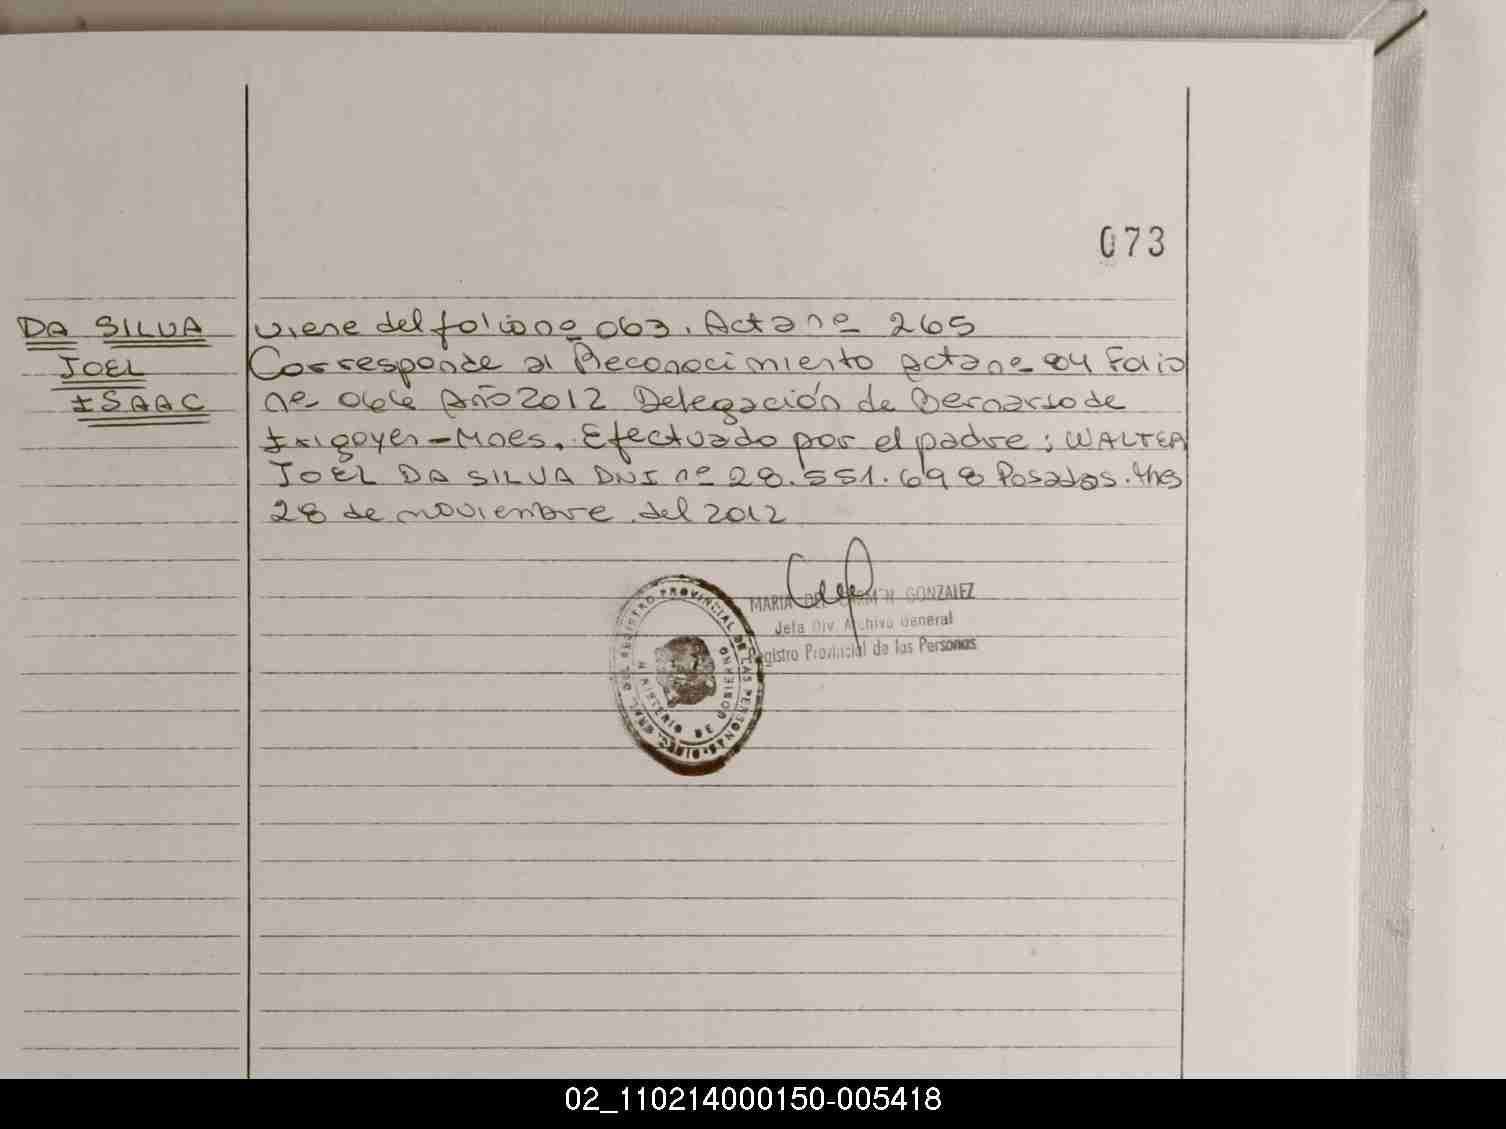 073
DA SILVA
JOEL
ISAAC
Viene del folio nº 063. Acta nº 265
Corresponde al Reconocimiento Acta nº 84 Folio
nº Año 2012 Delegación de Bernardo de
Irigoyen - Mnes. Efectuado por el padre; WALTER
JOEL DA SILVA DNI nº 28.551.698 Posadas. Mnes
28 de noviembre del 2012
MARIA DEL CARMEN GONZALEZ
Jefa Div. Archivo General
Registro Provincial de las Personas
DIREC. GRAL. DEL REGISTRO PROVINCIAL DE LAS PERSONAS
MINISTERIO DE GOBIERNO
02_110214000150-005418